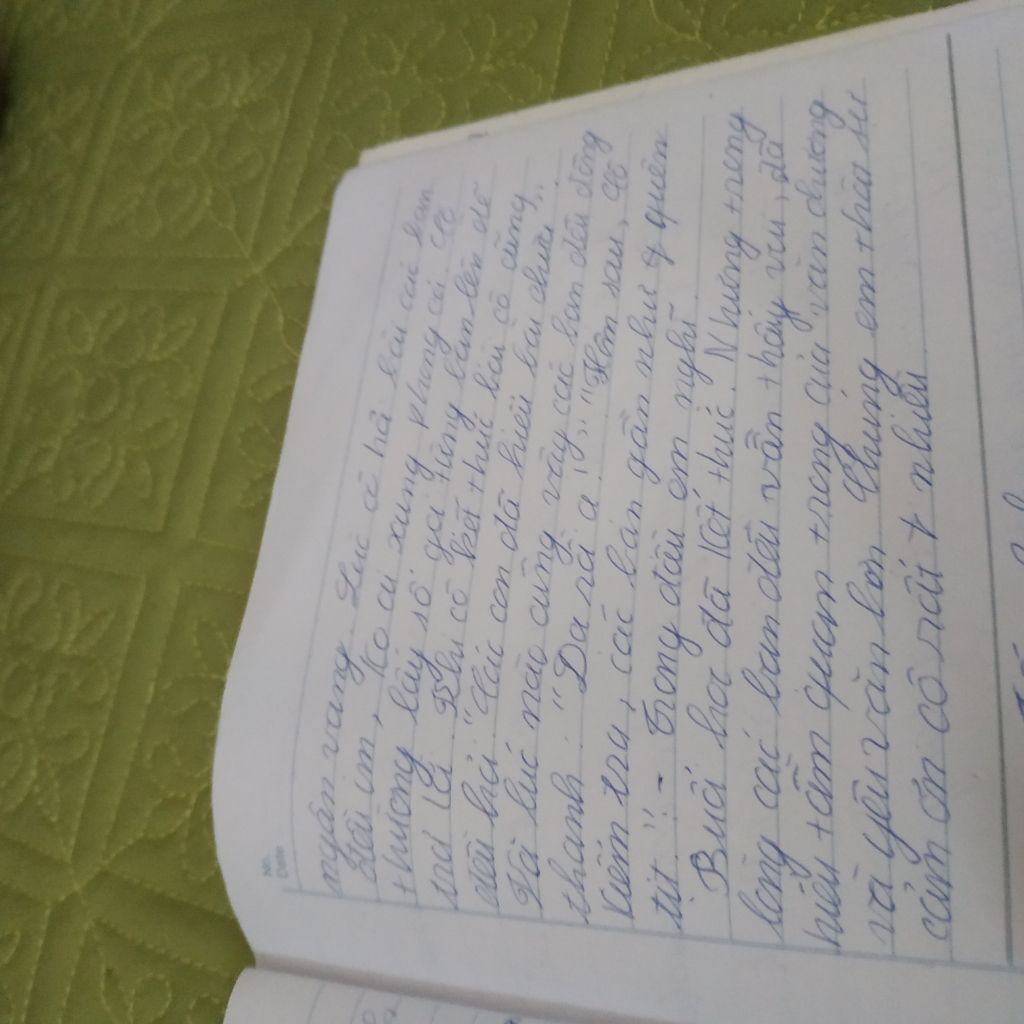 No.
Date
ngân vang. Lúc cô hỏi bài các bạn
đều im, ko ai xung phong cả. Cô
thường lấy sổ gọi từng bạn lên để
trả lời. Khi cô kết thúc bài cô cũng
đều hỏi "Các con đã hiểu bài chưa".
Và lúc nào cũng vậy các bạn đều đồng
thanh: "Dạ rồi ạ". "Hôm sau, cô
kiểm tra, các bạn gần như quên
tịt" - Trong đầu em nghĩ
Buổi học đã kết thúc. Nhưng trong
lòng các bạn đều vẫn thấy vui, đã
hiểu tầm quan trọng của văn chương
và yêu văn hơn. Chúng em thật sự
cảm ơn cô rất nhiều